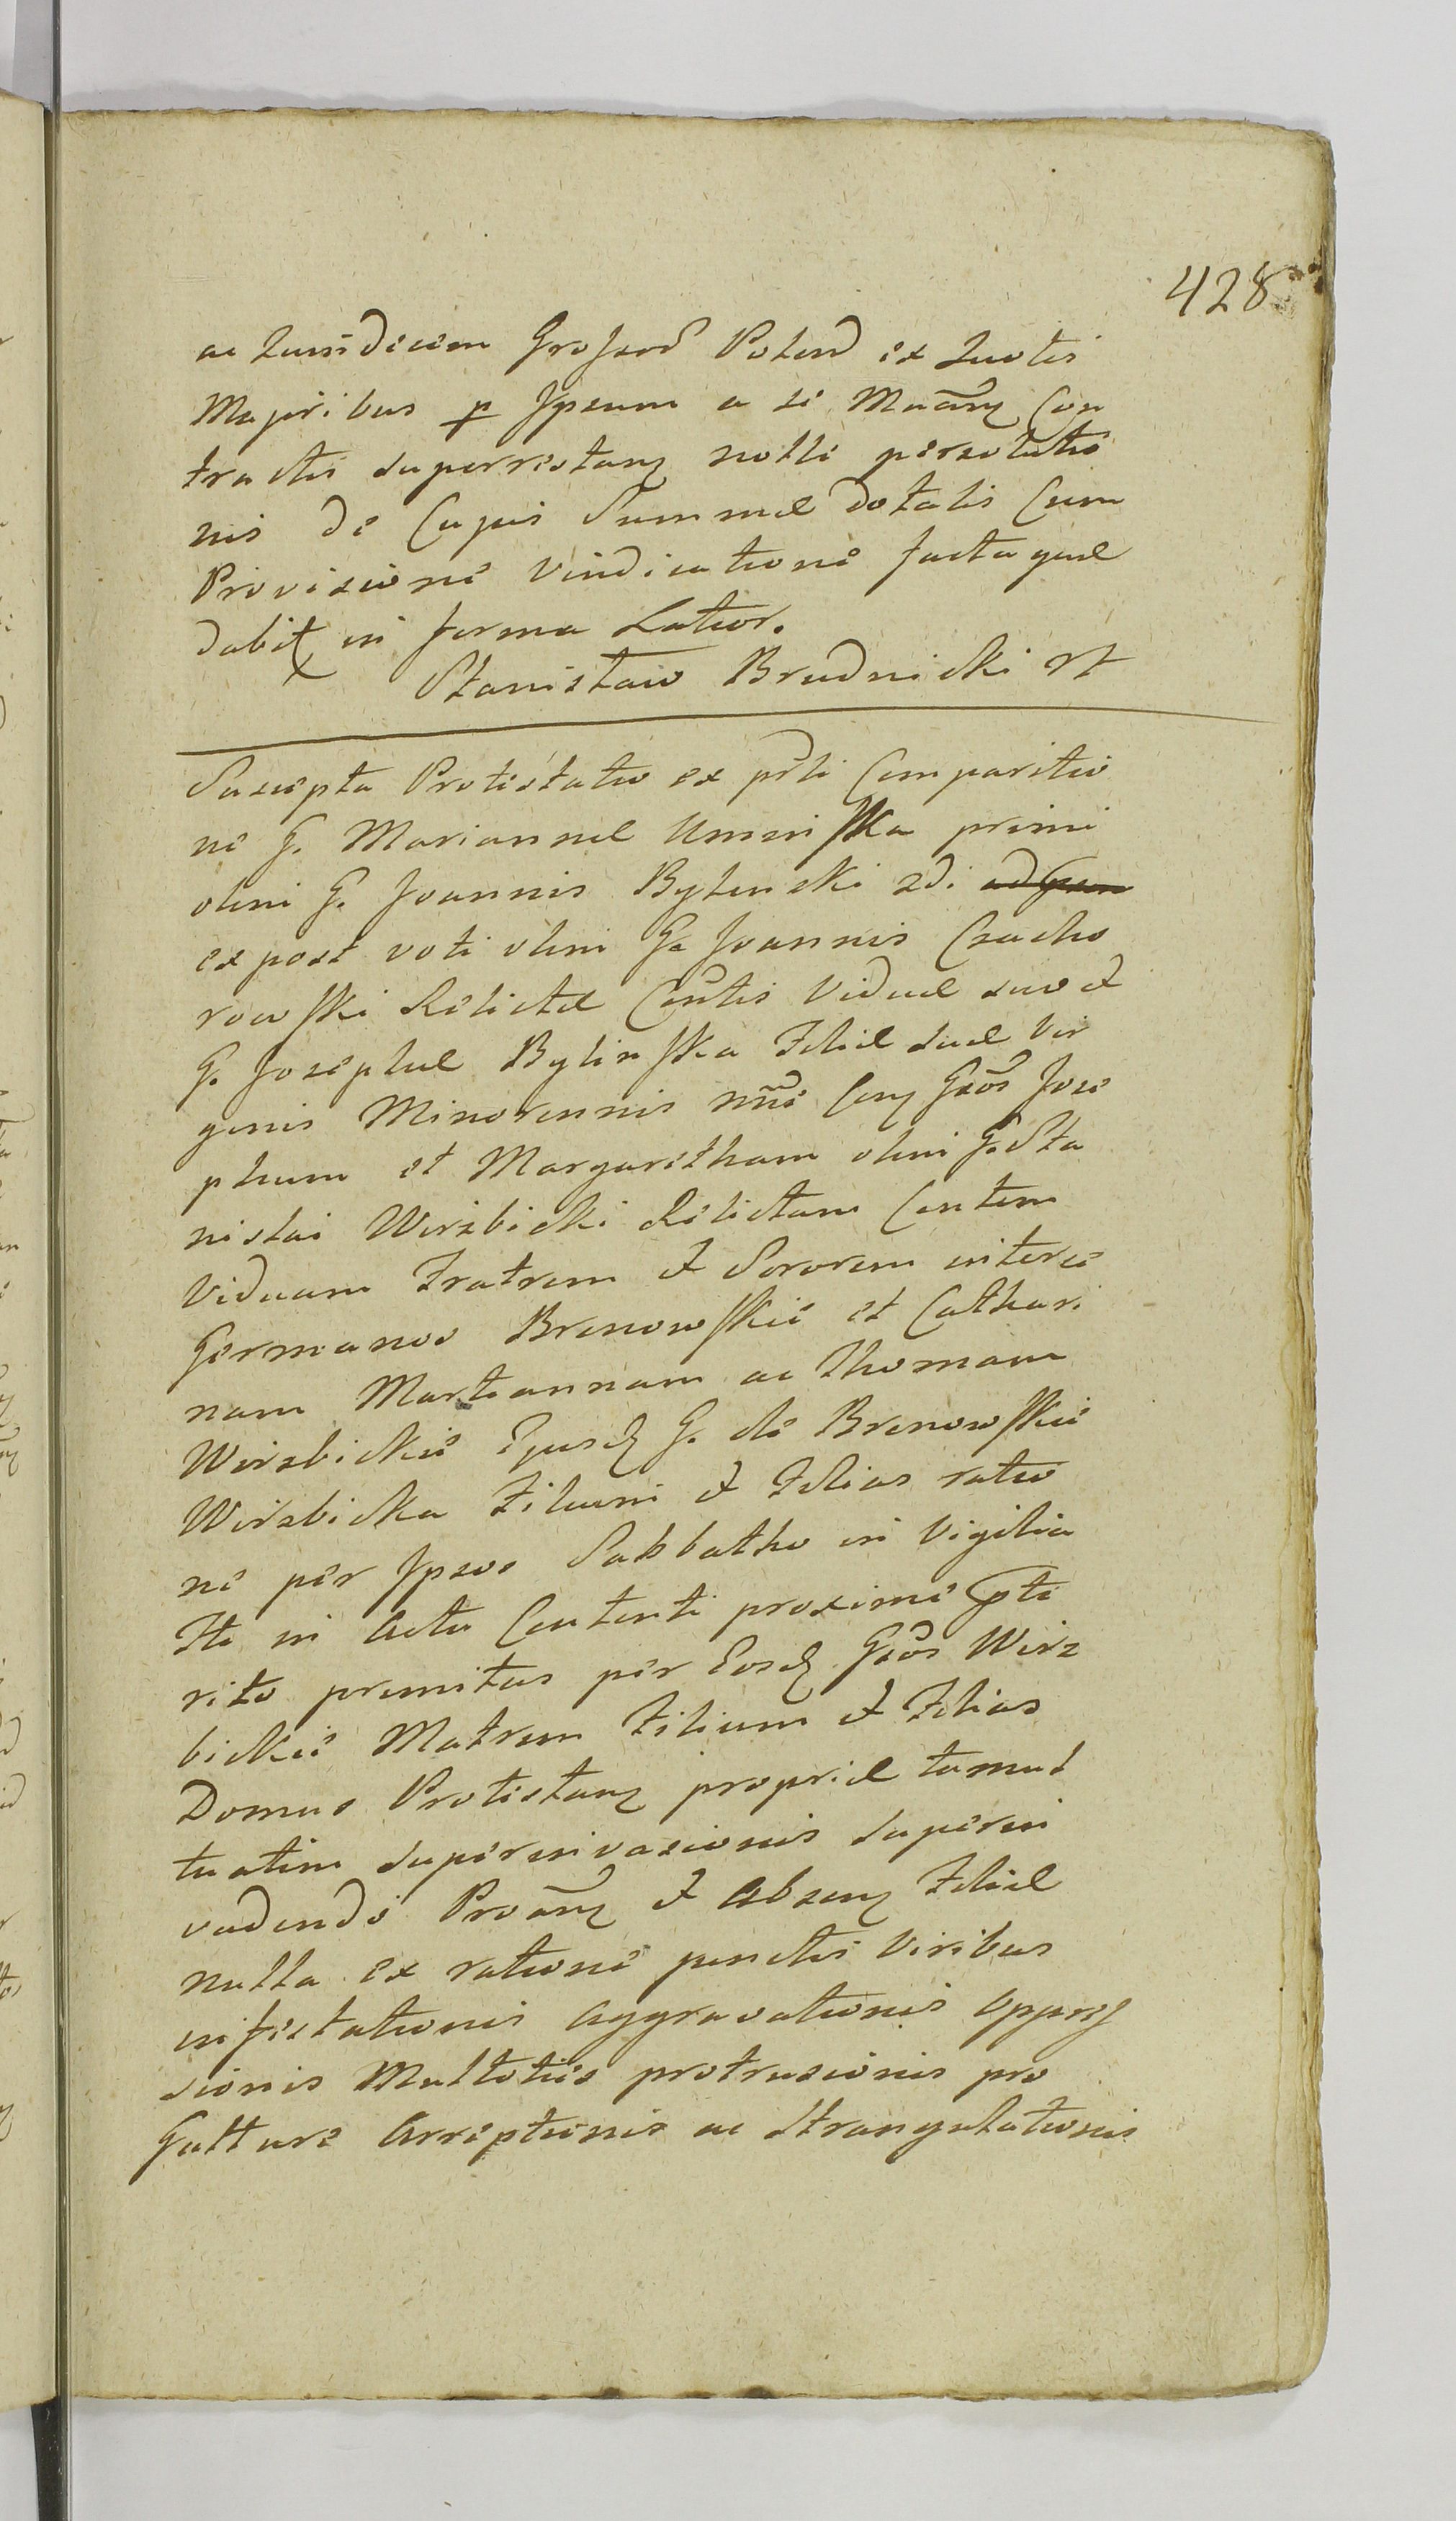 428
ac Quindecim Grossor Polon ex quotis
Majoribus p Ipsum a se Maany Con
tractis superrestany nolle persolutio
nis de Cujus Summae dotalis Cum
Provisione Vindicatione facta quae
dabit in forma Latior.
Stanisław Brudnicki
Suscepta Protestatio ex prti Comparitio
ne G. Mariannae Uminska primi
olim G. Joannis Bylinski 2di
ex post voti olim G. Joannis Czacho
rowski Relictae Contis Viduae suo et
G. Josephae Bylinska Filiae suae Vir
ginis Minorennis nne Cony Gsos Jose
phum et Margaretham olim G. Sta
nislai Wirzbicki Relictam Contem
Viduam Fratrem et Sororem inter se
Germanos Brenowskie et Cathari
nam Mariannam ac Thomam
Wirzbickie Ejusd G. de Brenowskie
Wirzbicka Filium et Filias ratio
ne per Ipsos Sabbatho in Vigilia
Fti in Actu Contenti proxime pti
rito premitus per Eosd Gsos Wirz
bickie Matrem Filium et Filias
Domus Protestany propriae tumul
tuatim superinvasionis superin
vadendo Proany et Abseny Filiae
nulla ex ratione junctis Viribus
infestationis Aggravationis Oppres
sionis Multoties protrusionis pro
Gutture Arreptionis ac Strangulationis